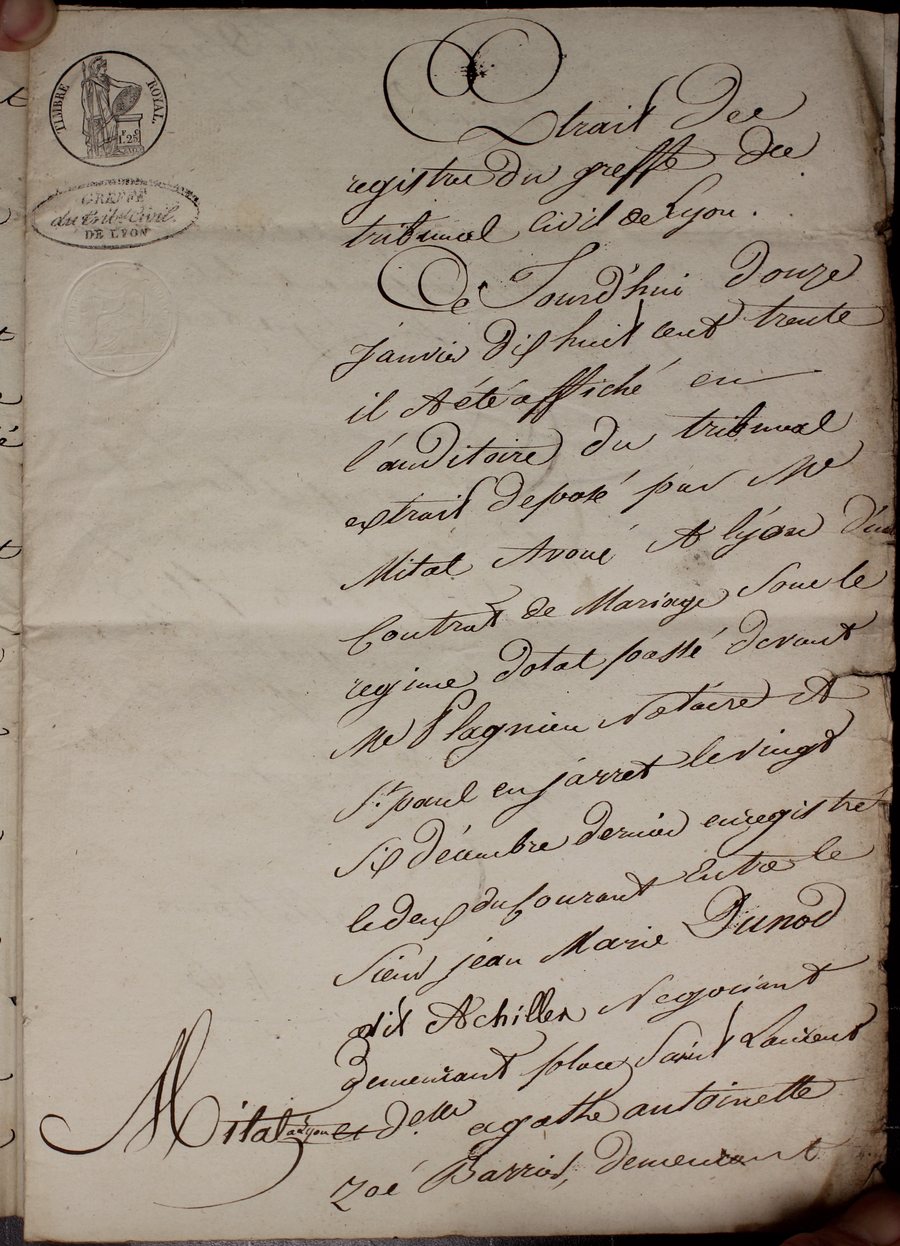 TIMBRE ROYAL.
1.F 25C
GREFFE
du tril Civil
DE LYON
Extrait des
registre du greffe du
tribunal Civil de Lyon.
Ce Jourd'hui douze
janvier dix huit cent trente
il A été affiché en
l'auditoire du tribunal
extrait deposé par Me
Mital Avoué A lyon d'un
Contrat de Mariage sous le
regime dotal passé devant
Me Plagnieu Notaire A
St. paul en jarret le vingt
six décembre dernier enregistré
le deux du Courant Entre le
Sieur jean Marie Dunod
dit Achilles Negociant
demeurant place Saint Laurent
Mital
a Lyon et delle agathe antoinette
Zoé Barriel, demeurant